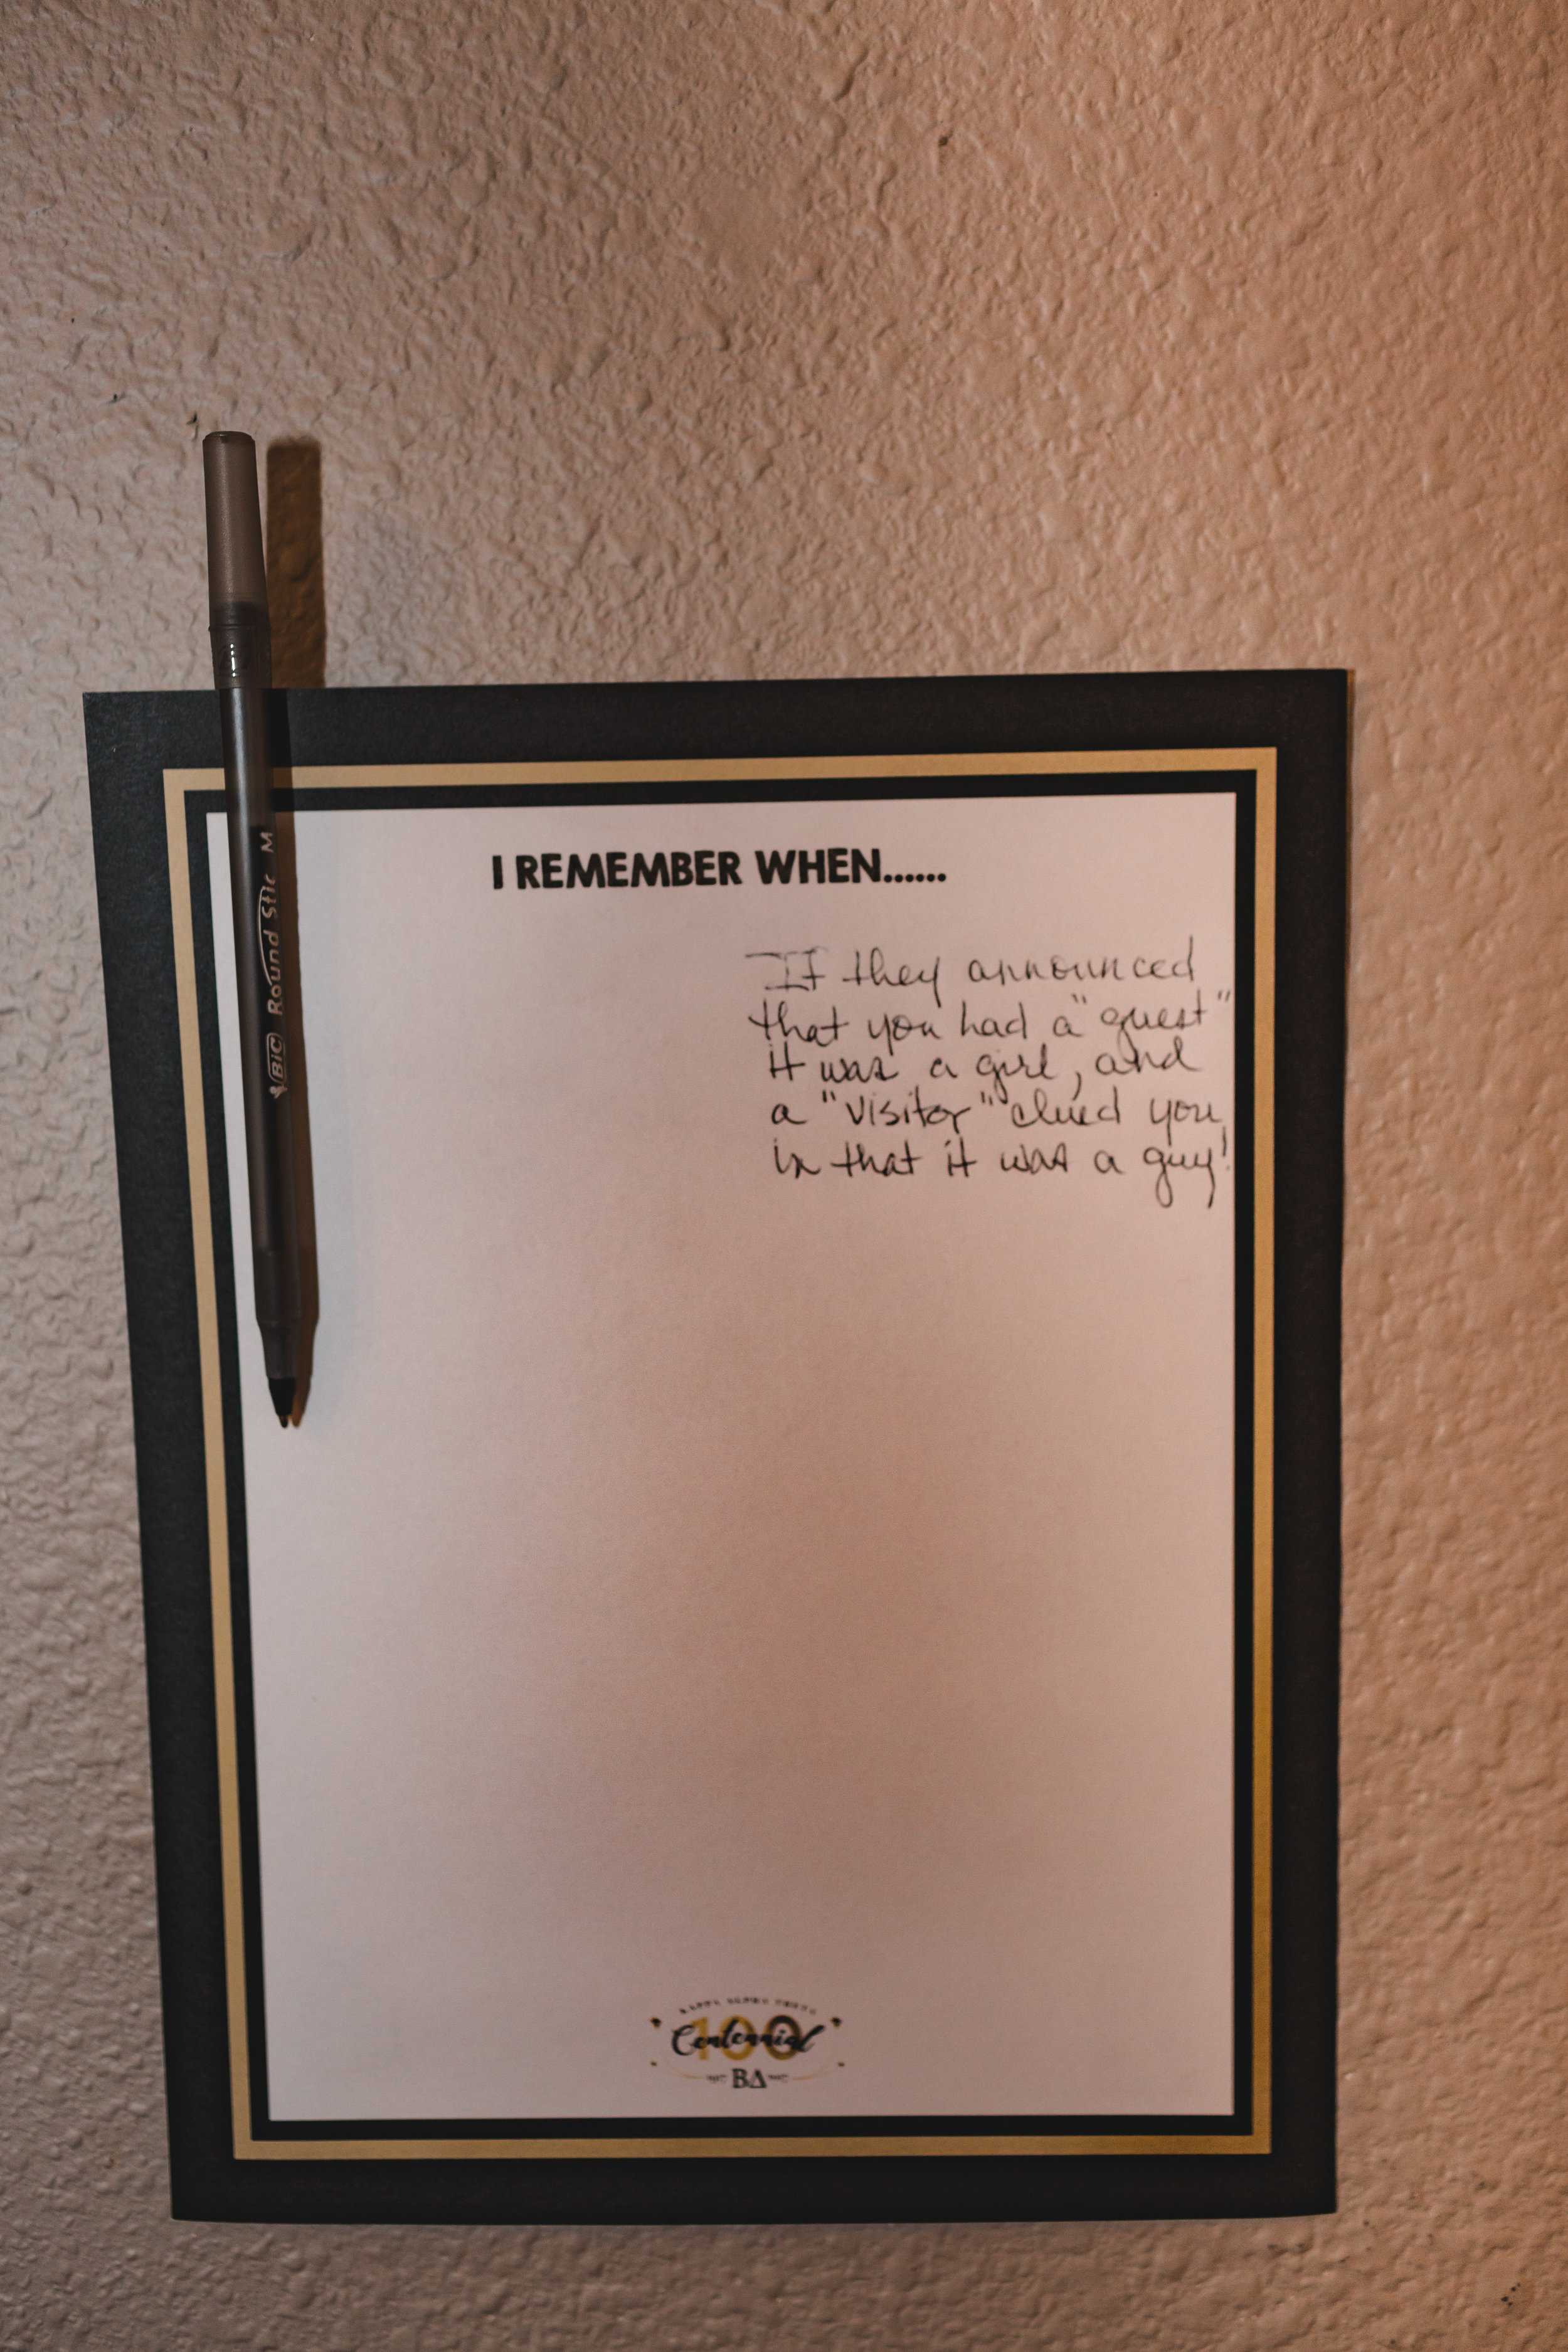 I REMEMBER WHEN......
If they announced
that you had a "guest"
it was a girl, and
a "visitor" clued you
in that it was a guy!
BIC Round Stic M
KAPPA ALPHA THETA
100
Centennial
ΒΔ